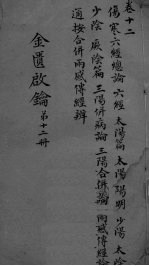 卷十二
傷寒六經總論 六經 太陽篇 太陽 陽明 少陽 太陰
少陰 厥陰篇 三陽併病論 三陽合病論 兩感傳經論
通按合併兩感傳經辨
金匱啟鑰 第十二冊